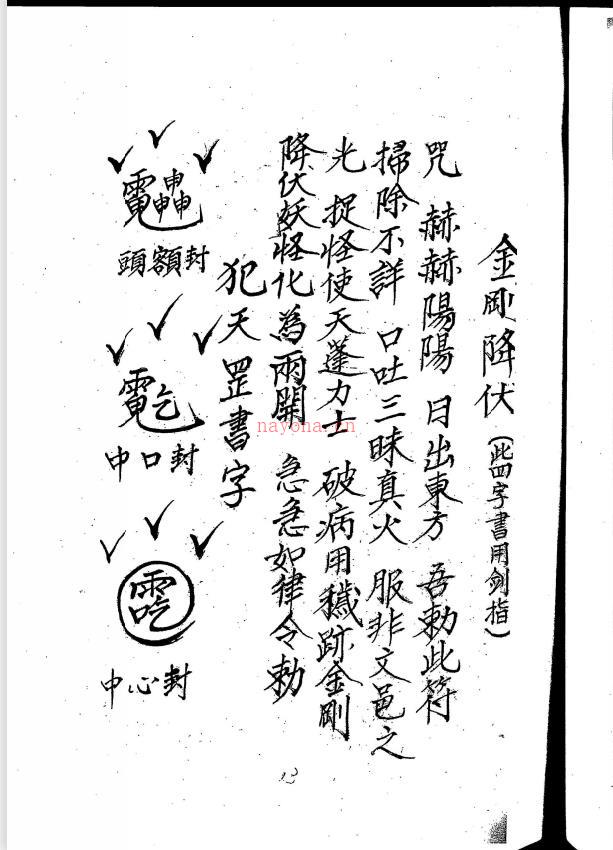 金剛降伏(此四字書用劍指)
咒 赫赫陽陽 日出東方 吾勅此符
掃除不詳 口吐三昧真火 服非文邑之
光 捉怪使天蓬力士 破病用穢跡金剛
降伏妖怪化為雨開 急急如律令勅
犯天罡書字
頭額封
中口封
中心封
nayona.cn
12